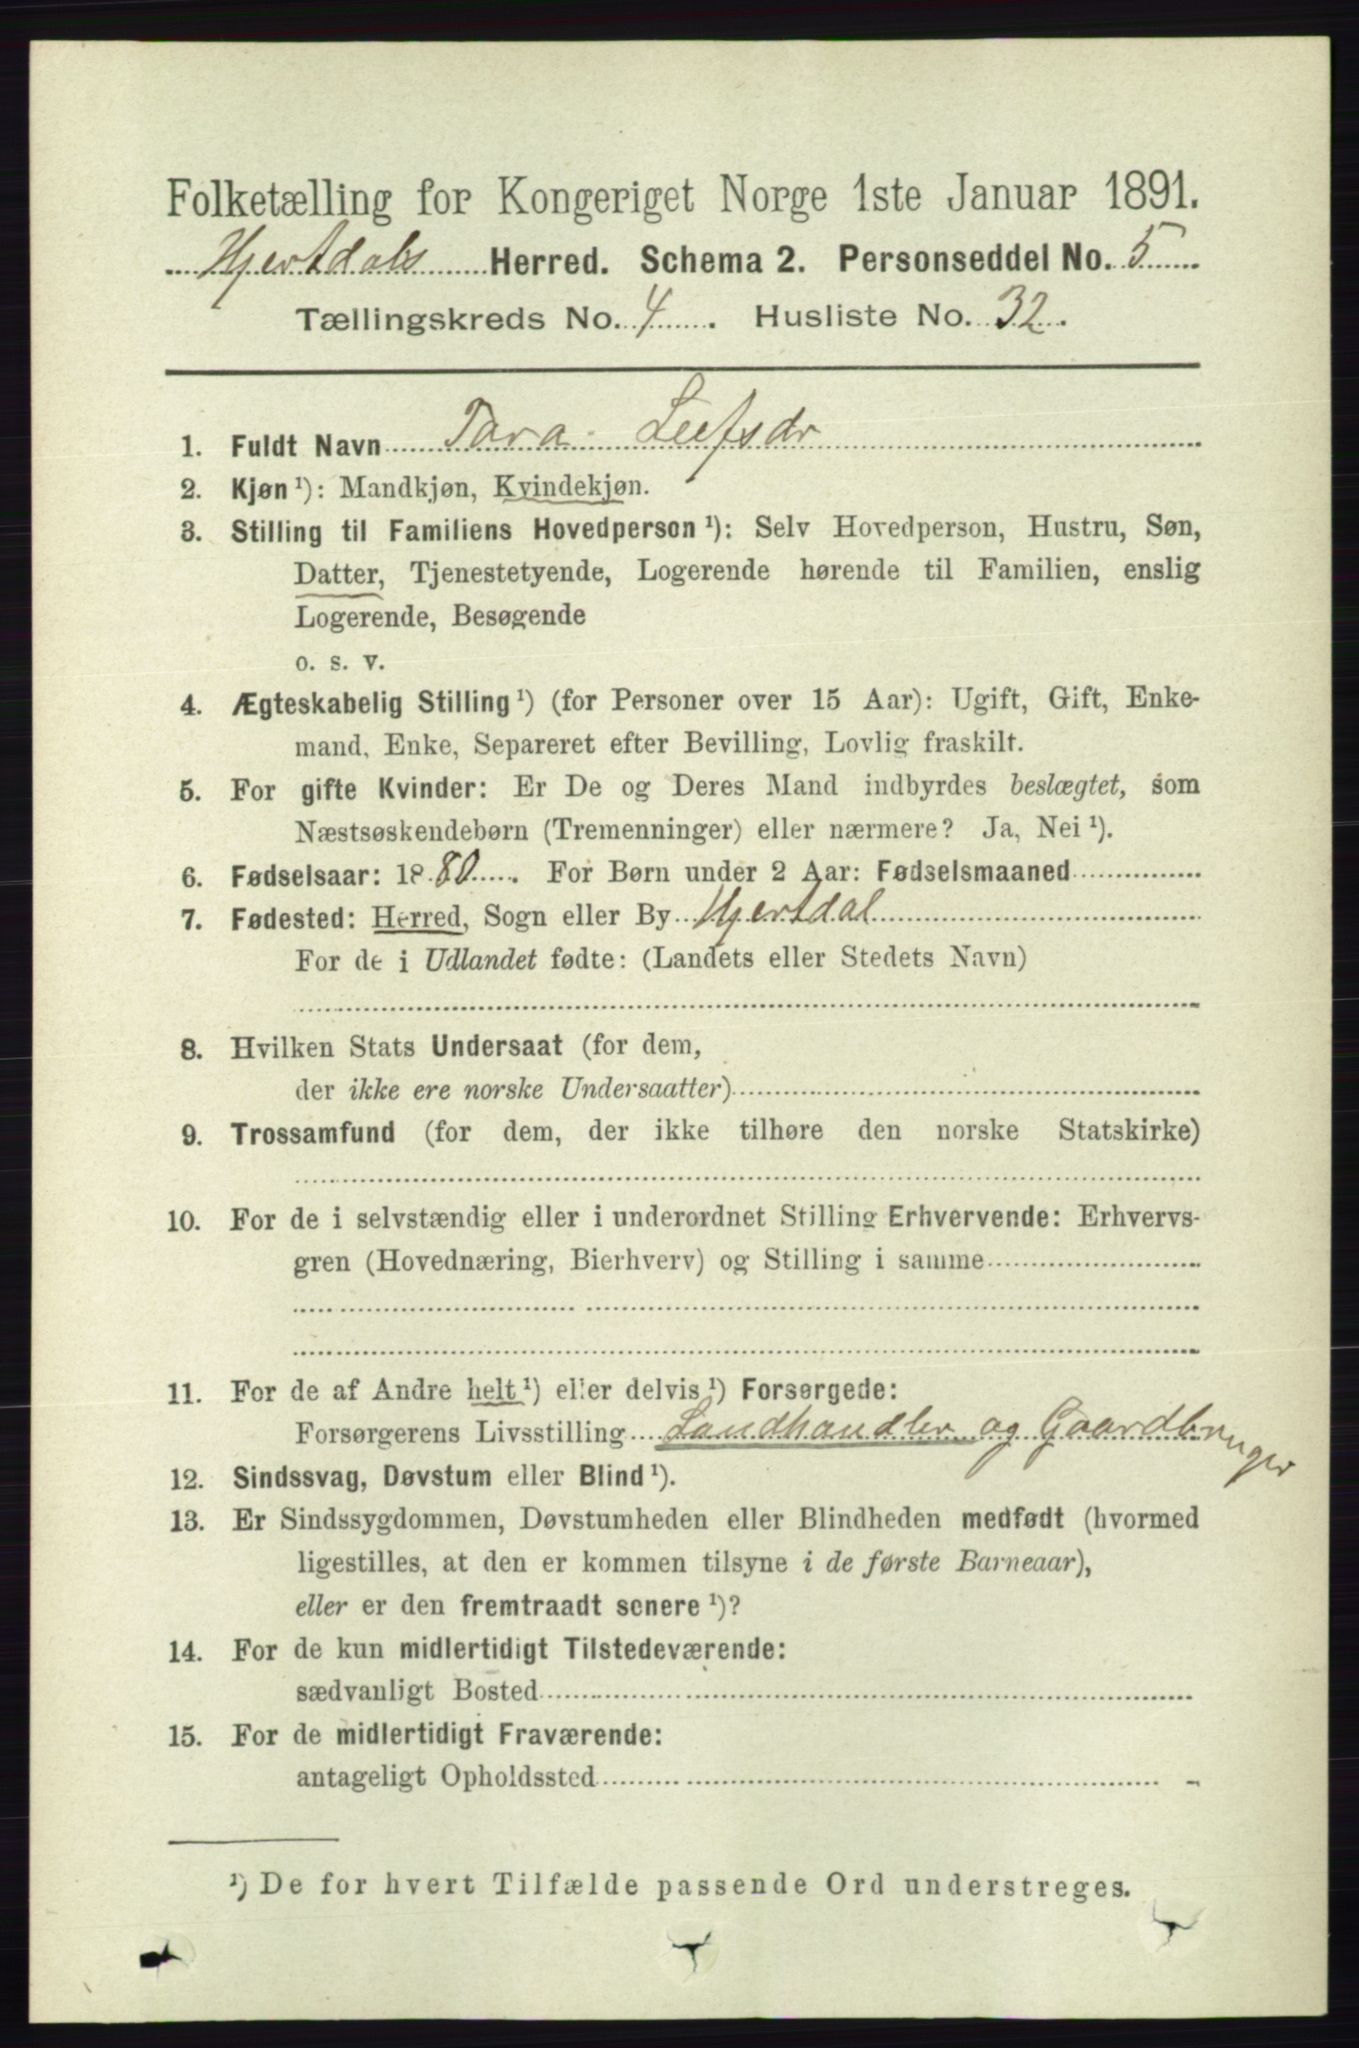 Folketælling for Kongeriget Norge 1ste Januar 1891.
Hjertdals Herred. Schema 2. Personseddel No. 5
Tællingskreds No. 4. Husliste No. 32.
1. Fuldt Navn Tara Leifsdr
2. Kjøn ¹): Mandkjøn, Kvindekjøn.
3. Stilling til Familiens Hovedperson ¹): Selv Hovedperson, Hustru, Søn,
Datter, Tjenestetyende, Logerende hørende til Familien, enslig
Logerende, Besøgende
o. s. v.
4. Ægteskabelig Stilling ¹) (for Personer over 15 Aar): Ugift, Gift, Enke-
mand, Enke, Separeret efter Bevilling, Lovlig fraskilt.
5. For gifte Kvinder: Er De og Deres Mand indbyrdes beslægtet, som
Næstsøskendebørn (Tremenninger) eller nærmere? Ja, Nei ¹).
6. Fødselsaar: 1880. For Børn under 2 Aar: Fødselsmaaned
7. Fødested: Herred, Sogn eller By Hjertdal
For de i Udlandet fødte: (Landets eller Stedets Navn)
8. Hvilken Stats Undersaat (for dem,
der ikke ere norske Undersaatter)
9. Trossamfund (for dem, der ikke tilhøre den norske Statskirke)
10. For de i selvstændig eller i underordnet Stilling Erhvervende: Erhvervs-
gren (Hovednæring, Bierhverv) og Stilling i samme
11. For de af Andre helt ¹) eller delvis ¹) Forsørgede:
Forsørgerens Livsstilling Landhandler og Gaardbruger
12. Sindssvag, Døvstum eller Blind ¹).
13. Er Sindssygdommen, Døvstumheden eller Blindheden medfødt (hvormed
ligestilles, at den er kommen tilsyne i de første Barneaar),
eller er den fremtraadt senere ¹)?
14. For de kun midlertidigt Tilstedeværende:
sædvanligt Bosted
15. For de midlertidigt Fraværende:
antageligt Opholdssted
¹) De for hvert Tilfælde passende Ord understreges.